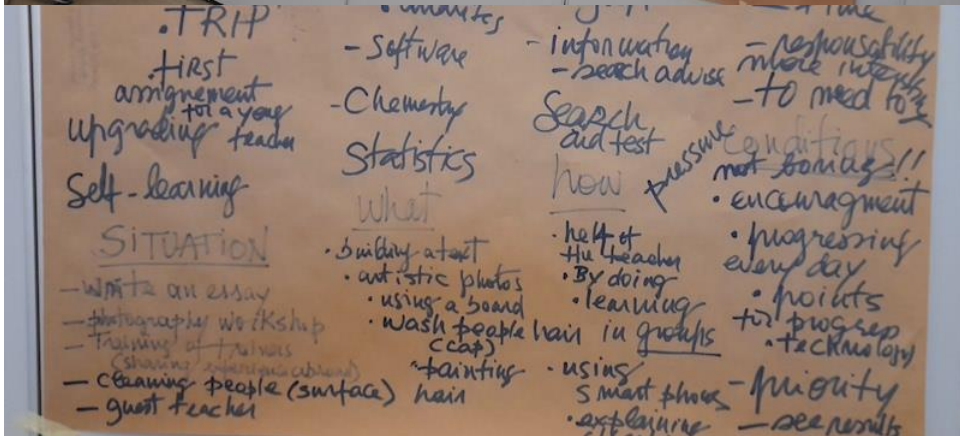 • TRIP
• first
assignement
for a young
teacher
upgrading
Self-learning
SITUATION
- write an essay
- photography workshop
- Training of trainers
(sharing experience abroad)
- cleaning people (surface) hair
- guest teacher
- Software
- Chemestry
Statistics
what
• building a text
• artistic photos
• using a board
• wash people hair in groups
(CAP)
• painting
- information
- search advise
Search
and test
how
pressure
• help of
the teacher
• By doing
• learning
• using
smart phones
• explaining
- responsability
more
- to need to
conditions
not boring!!
• encouragment
• progressing
every day
• points
for progress
• technology
- priority
- see results